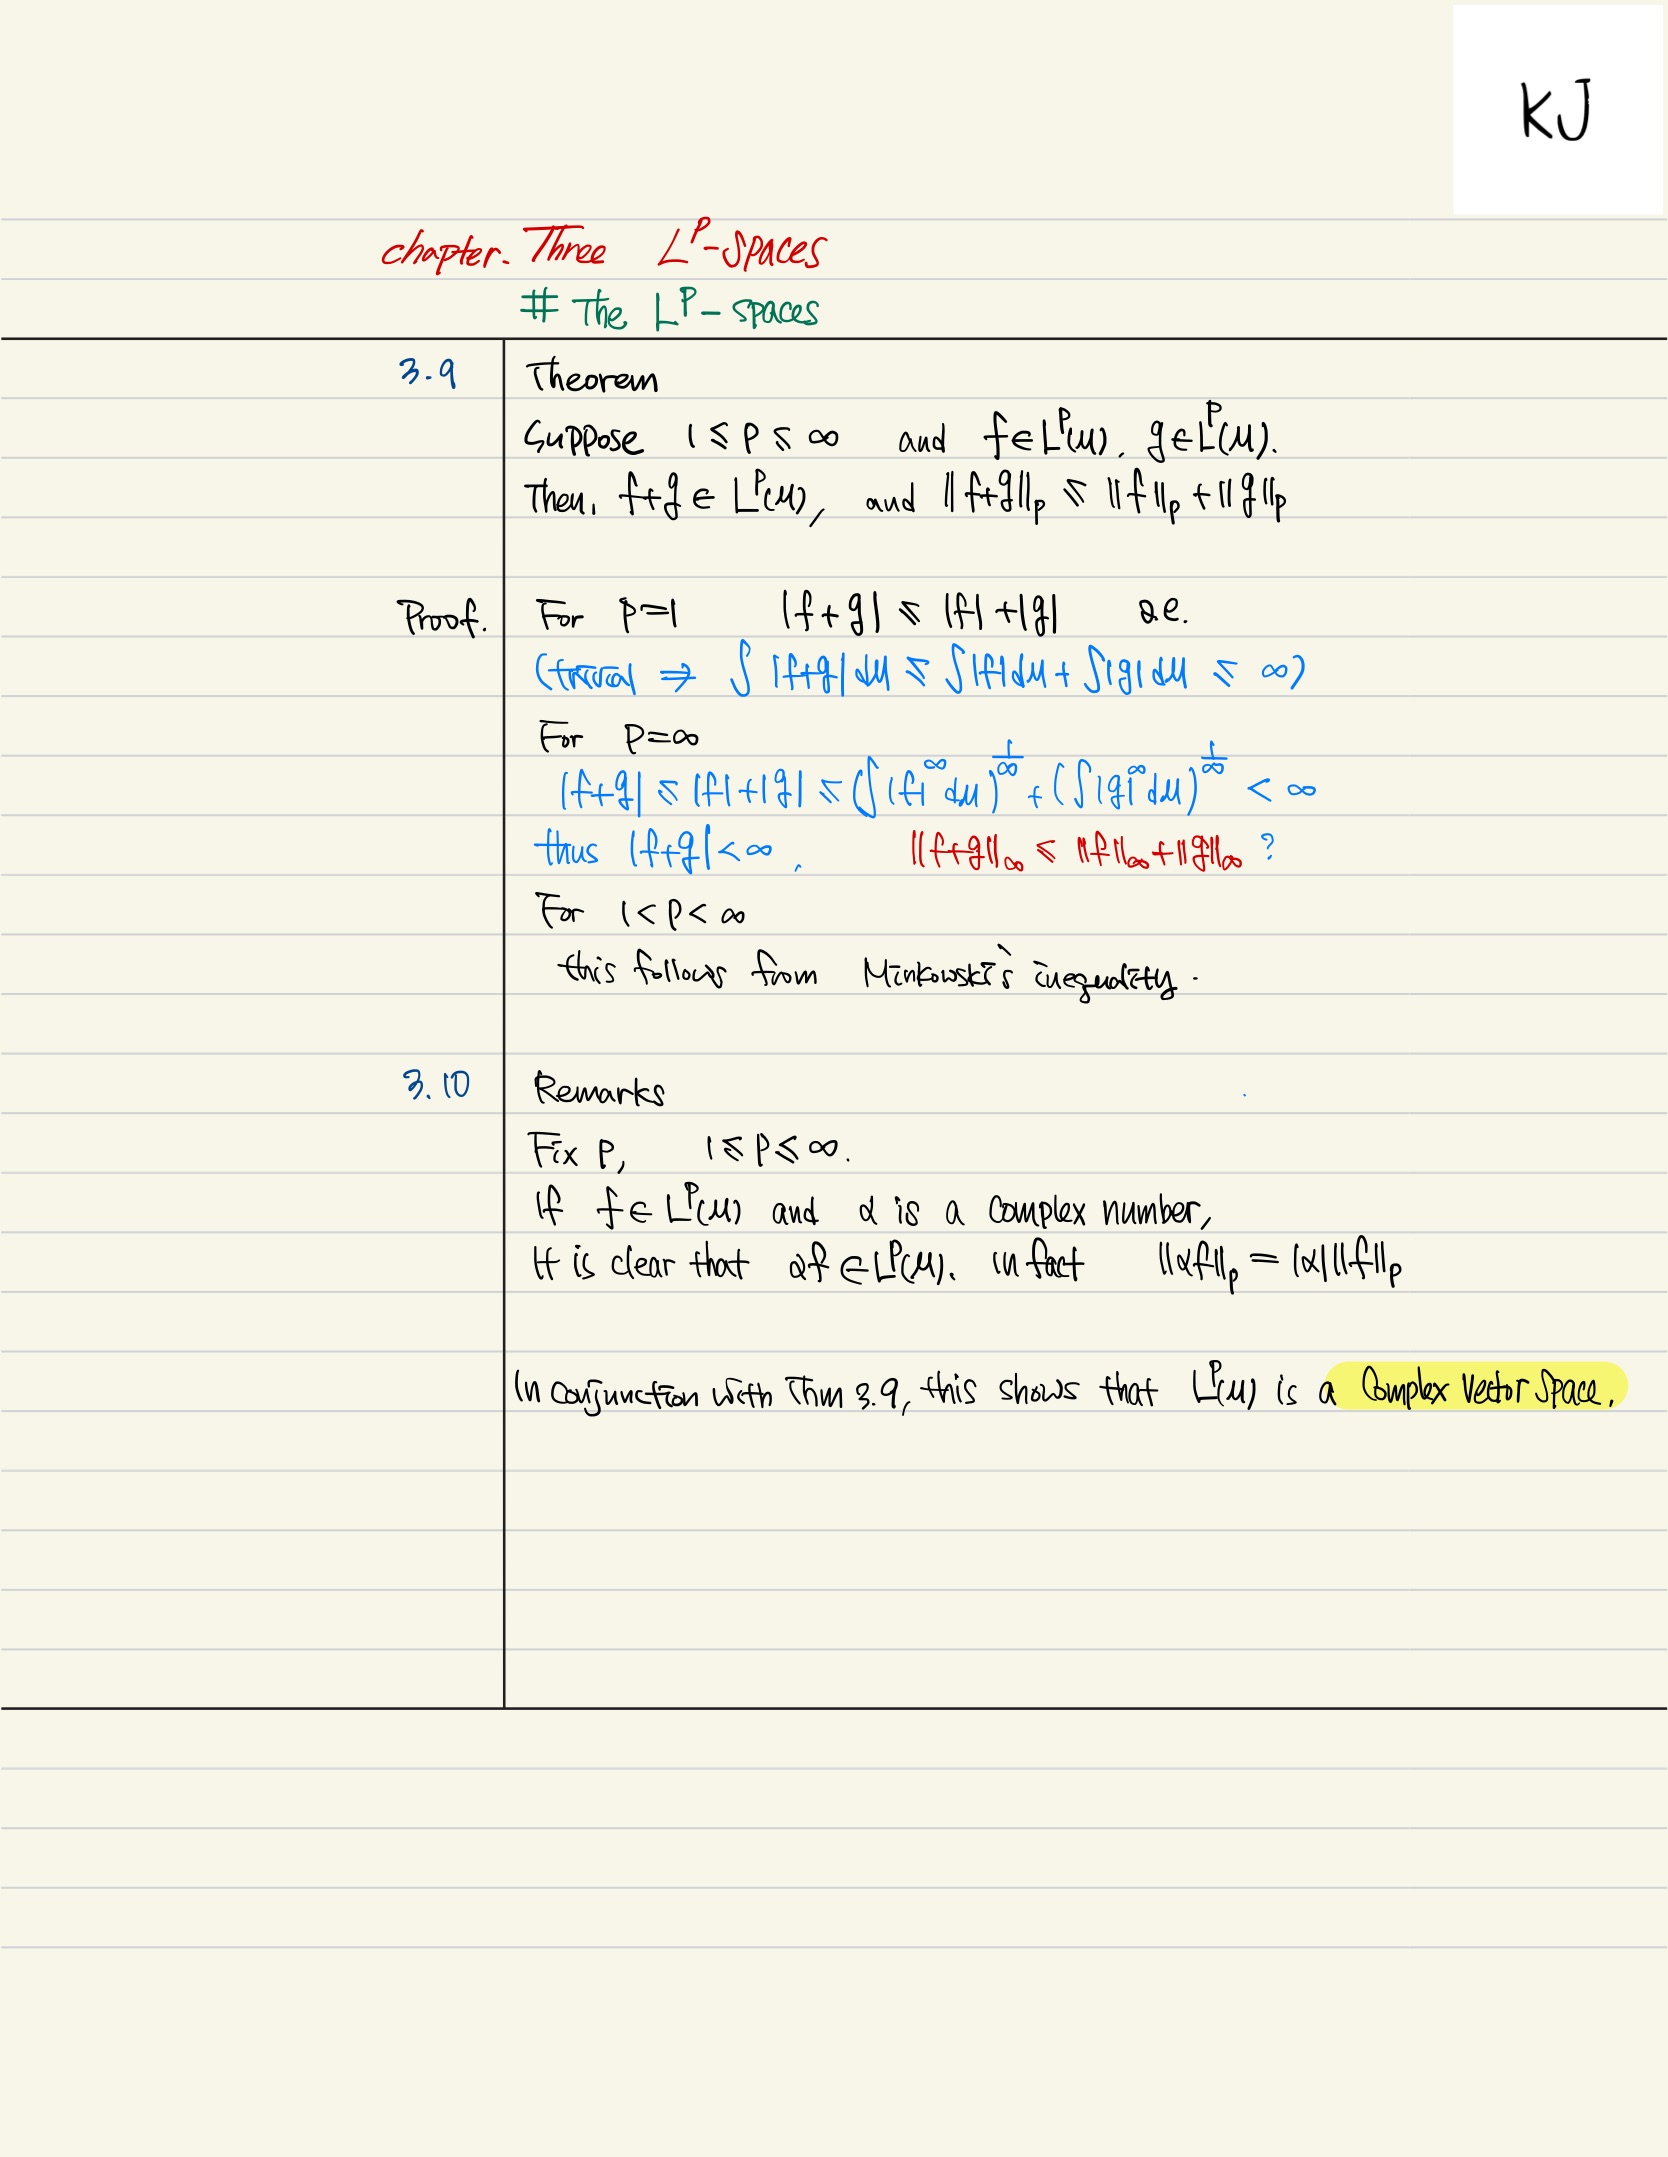 KJ
chapter. Three L^p-spaces
# The L^p-spaces
3.9 Theorem
Suppose 1 ≤ p ≤ ∞ and f∈L^p(μ), g∈L^p(μ).
Then, f+g ∈ L^p(μ), and ‖f+g‖_p ≤ ‖f‖_p + ‖g‖_p
Proof. For p=1 |f+g| ≤ |f|+|g| a.e.
(trivial ⇒ ∫|f+g|dμ ≤ ∫|f|dμ + ∫|g|dμ ≤ ∞)
For p=∞
|f+g| ≤ |f|+|g| ≤ (∫|f|^∞ dμ)^{1/∞} + (∫|g|^∞ dμ)^{1/∞} < ∞
thus |f+g|<∞, ‖f+g‖_∞ ≤ ‖f‖_∞+‖g‖_∞ ?
For 1<p<∞
this follows from Minkowski's inequality.
3.10 Remarks
Fix p, 1≤p≤∞.
If f∈L^p(μ) and α is a complex number,
It is clear that αf∈L^p(μ). in fact ‖αf‖_p = |α|‖f‖_p
In conjunction with Thm 3.9, this shows that L^p(μ) is a Complex Vector Space.